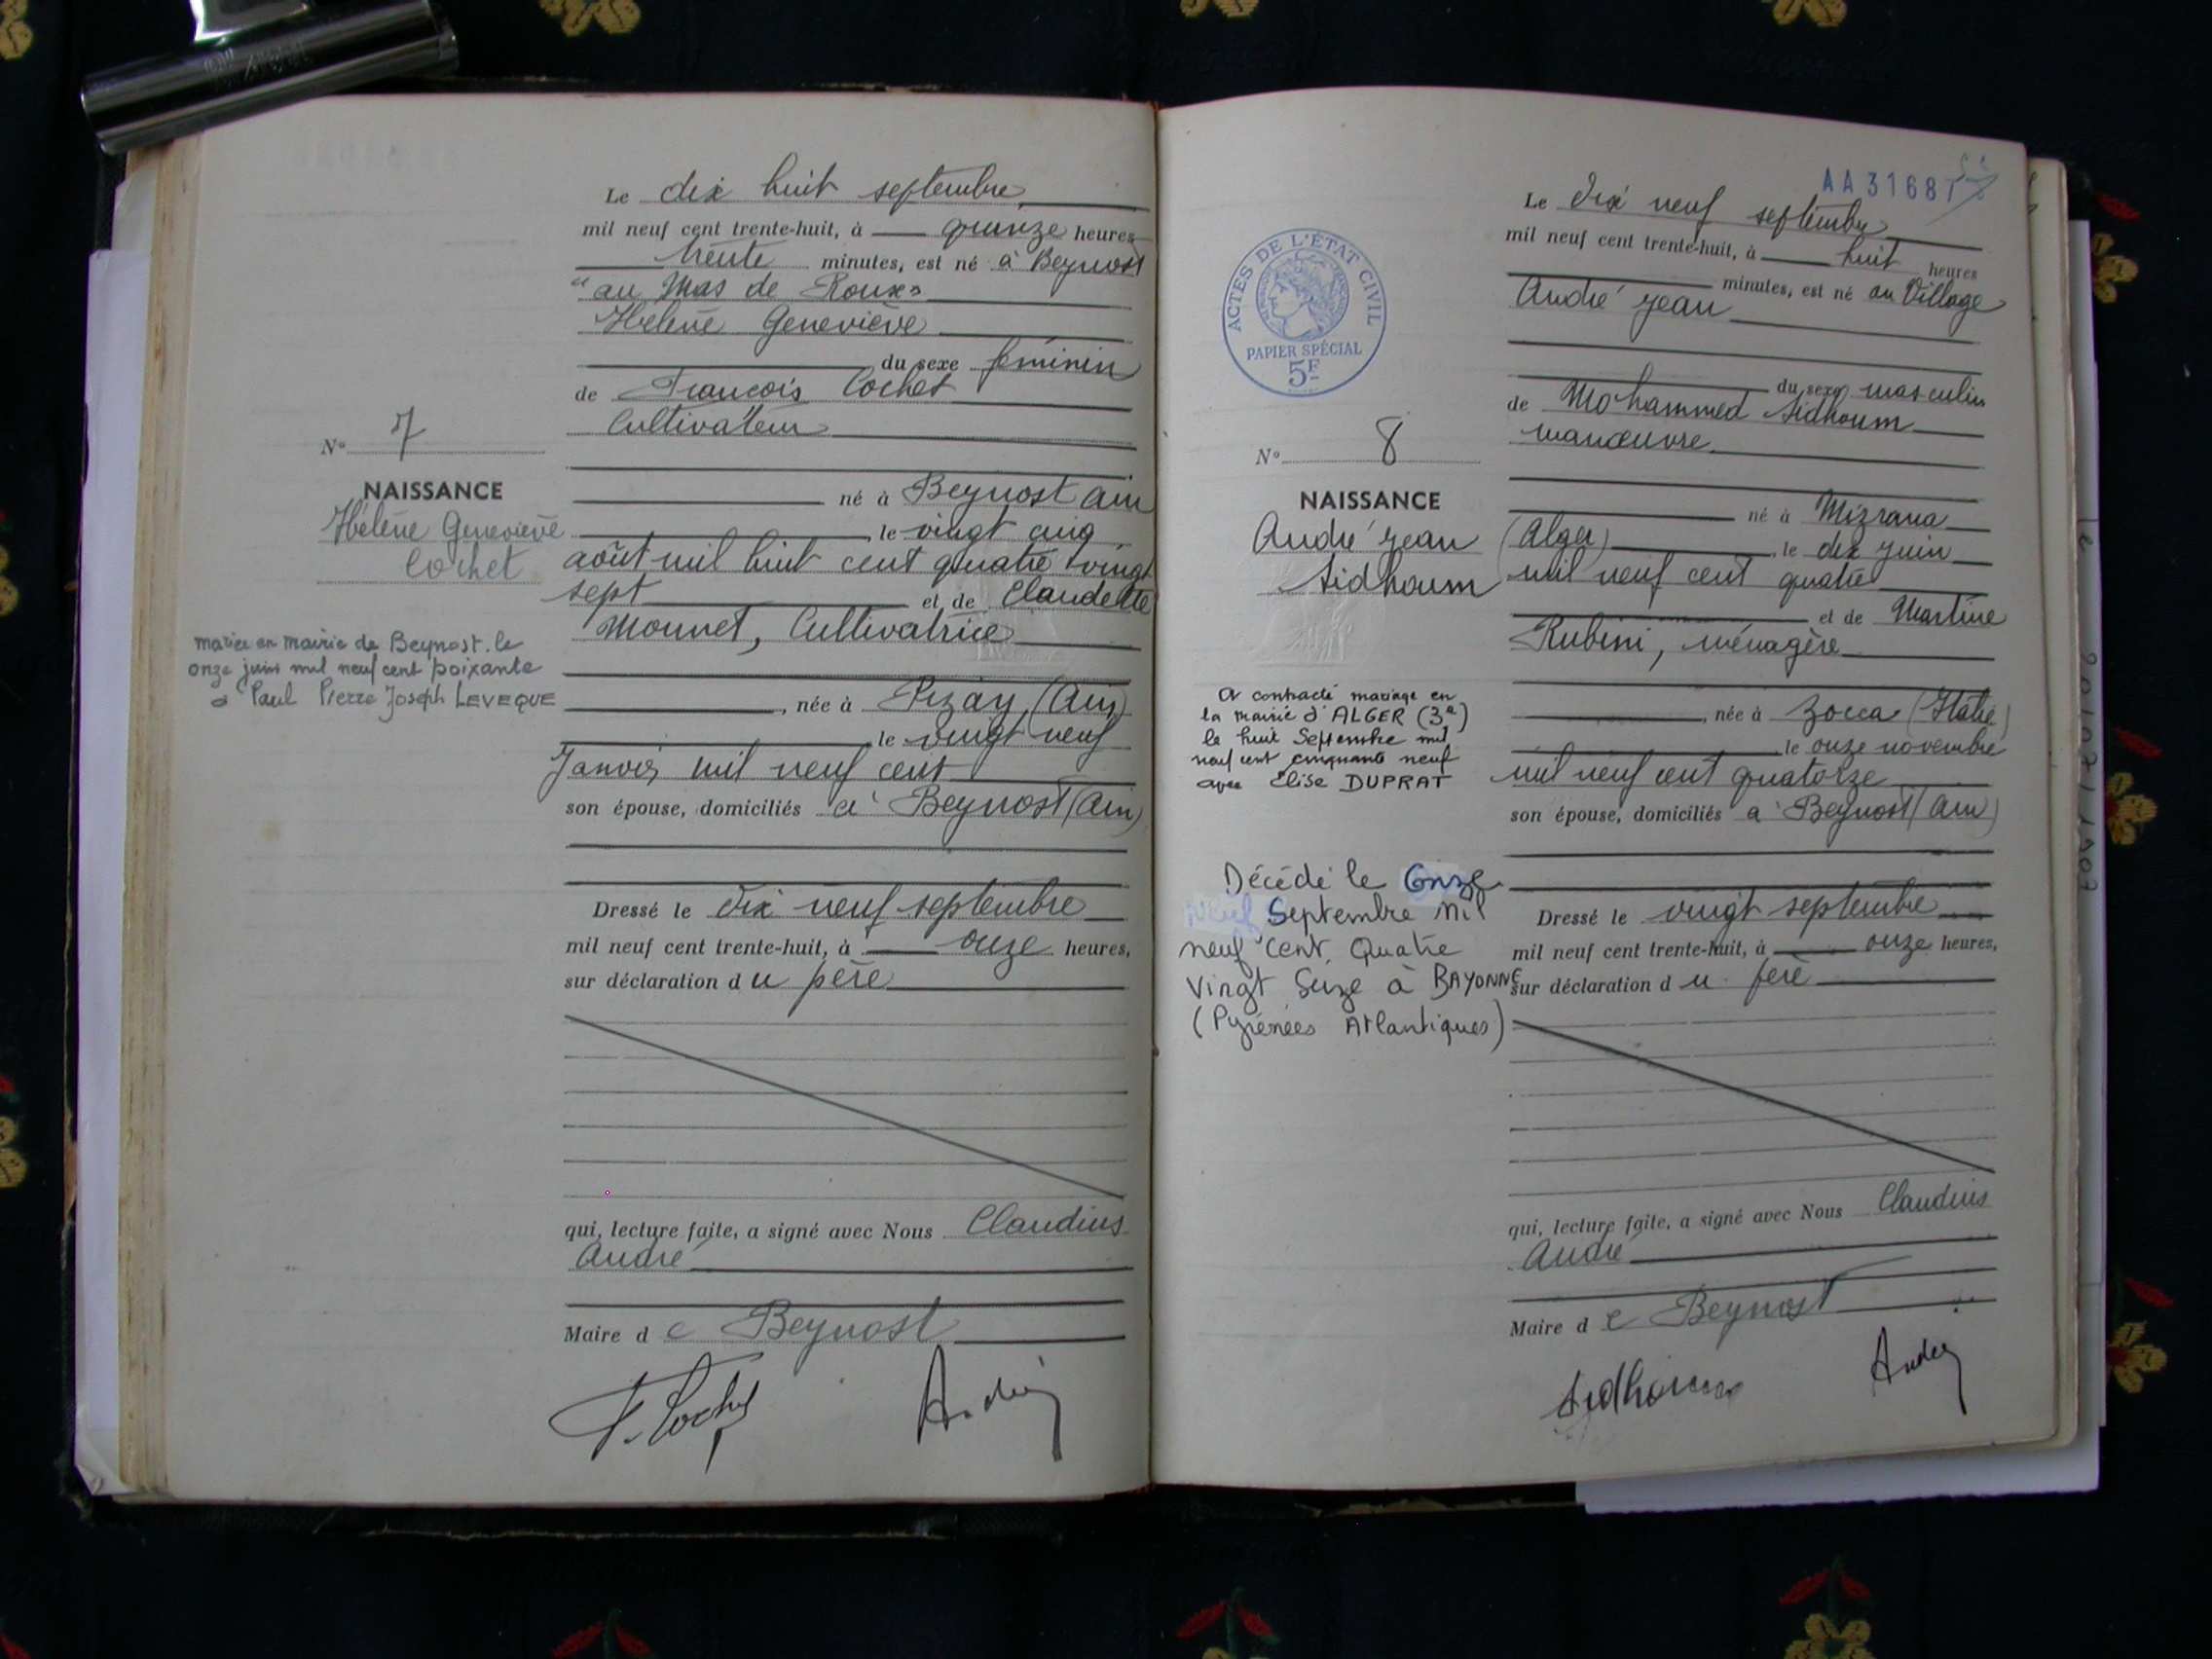 Le dix huit septembre
mil neuf cent trente-huit, à quinze heures
trente minutes, est né à Beynost
"au Mas de Roux"
Hélène Geneviève
du sexe féminin
de François Cochet
Cultivateur
né à Beynost Ain
le vingt cinq
août mil huit cent quatre vingt
sept et de Claudette
Monnet, Cultivatrice
, née à Pizay (Ain)
le vingt neuf
Janvier mil neuf cent
son épouse, domiciliés à Beynost (Ain)
Dressé le dix neuf septembre
mil neuf cent trente-huit, à onze heures,
sur déclaration du père
qui, lecture faite, a signé avec Nous Claudius
André
Maire de Beynost
F. Cochet
André
N° 7
NAISSANCE
Hélène Geneviève
Cochet
mariée en mairie de Beynost le
onze juin mil neuf cent soixante
à Paul Pierre Joseph LEVEQUE
AA31687
Le dix neuf septembre
mil neuf cent trente-huit, à huit heures
minutes, est né au Village
André Jean
du sexe masculin
de Mohammed Sidhoum
manœuvre
né à Mizrana
(Alger), le dix juin
mil neuf cent quatre
et de Martine
Rubini, ménagère
, née à Zocca (Italie)
le onze novembre
mil neuf cent quatorze
son épouse, domiciliés à Beynost (Ain)
Dressé le vingt septembre
mil neuf cent trente-huit, à onze heures,
sur déclaration du père
qui, lecture faite, a signé avec Nous Claudius
André
Maire de Beynost
Sidhoum
André
ACTES DE L'ÉTAT CIVIL
PAPIER SPÉCIAL
5F
N° 8
NAISSANCE
André Jean
Sidhoum
A contracté mariage en
la mairie d'ALGER (3e)
le huit Septembre mil
neuf cent cinquante neuf
avec Elise DUPRAT
Décédé le Onze
Septembre Mil
neuf Cent Quatre
Vingt Seize à BAYONNE
(Pyrénées Atlantiques)